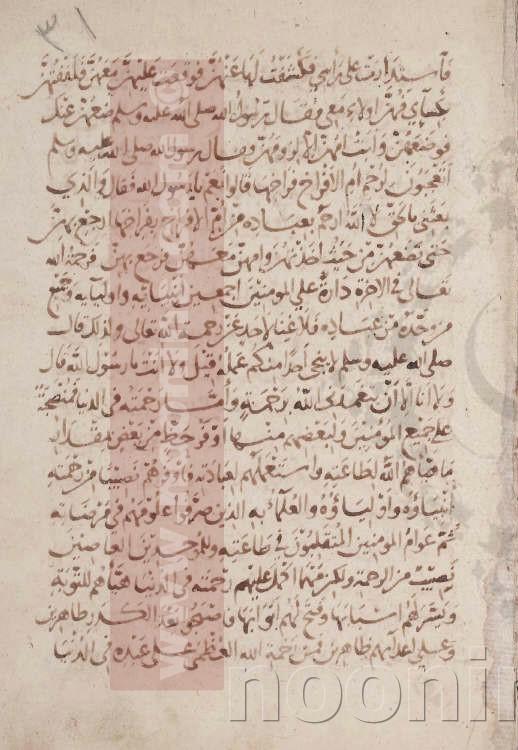 ٣١
فاستدارت على رأسي فكشفت لها عنهن فوقعت عليهن معهن فلففتهن
بكسائي فهن اولاء معي فقال رسول الله صلى الله عليه وسلم ضعهن عنك
فوضعهن وأبت امهن الا لزومهن فقال رسول الله صلى الله عليه وسلم
اتعجبون لرحم ام الافراخ فراخها قالوا نعم يا رسول الله فقال والذي
بعثني بالحق لا لله ارحم بعباده من ام الافراخ بفراخها ارجع بهن
حتى تضعهن من حيث اخذتهن وامهن معهن فرجع بهن فرحمة الله
تعالى في الاخرة دارة على المومنين اجمعين انبيائه واوليايه وجميع
من وحده من عباده فلا غنا لاحد عن رحمة الله تعالى ولذلك قال
صلى الله عليه وسلم لا ينجي احدا منكم عمله قيل ولا انت يا رسول الله قال
ولا انا الا ان يتغمدني الله برحمته وأما رحمته في الدنيا
على جميع المؤمنين ولبعضهم منها اوفر حظ من بعض بمقدار
ما هياهم الله لطاعته واستعملهم لعبادته فاوفرهم نصيبا من رحمته
انبياؤه واولياؤه والعلماء به الذين صرفوا علومهم في مرضاته
ثم عوام المؤمنين المتقلبون في طاعته وللموحدين العاصين
نصيب من الرحمة ولكن منها اكمل عليهم رحمته في الدنيا هياهم للتوبة
ويسر لهم اسبابها وفتح لهم ابوابها فاضحوا بعد الكدر طاهرين
وعلى اعدائهم ظاهرين فمن رحمة الله العظمى على عبده في الدنيا
noonin